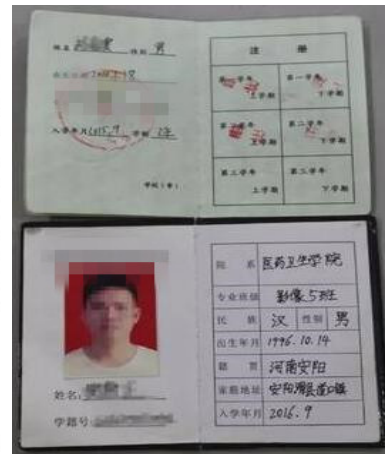 姓名 性别 男
出生日期
入学年月 2015.9 学制 2年
学校(章)
注 册
第一学年 上学期
第一学年 下学期
第二学年 上学期
第二学年 下学期
第三学年 上学期
第三学年 下学期
姓名:
学籍号:
院 系 医药卫生学院
专业班级 影像5班
民 族 汉 性别 男
出生年月 1996.10.14
籍 贯 河南安阳
家庭地址 安阳滑县道口镇
入学年月 2016.9